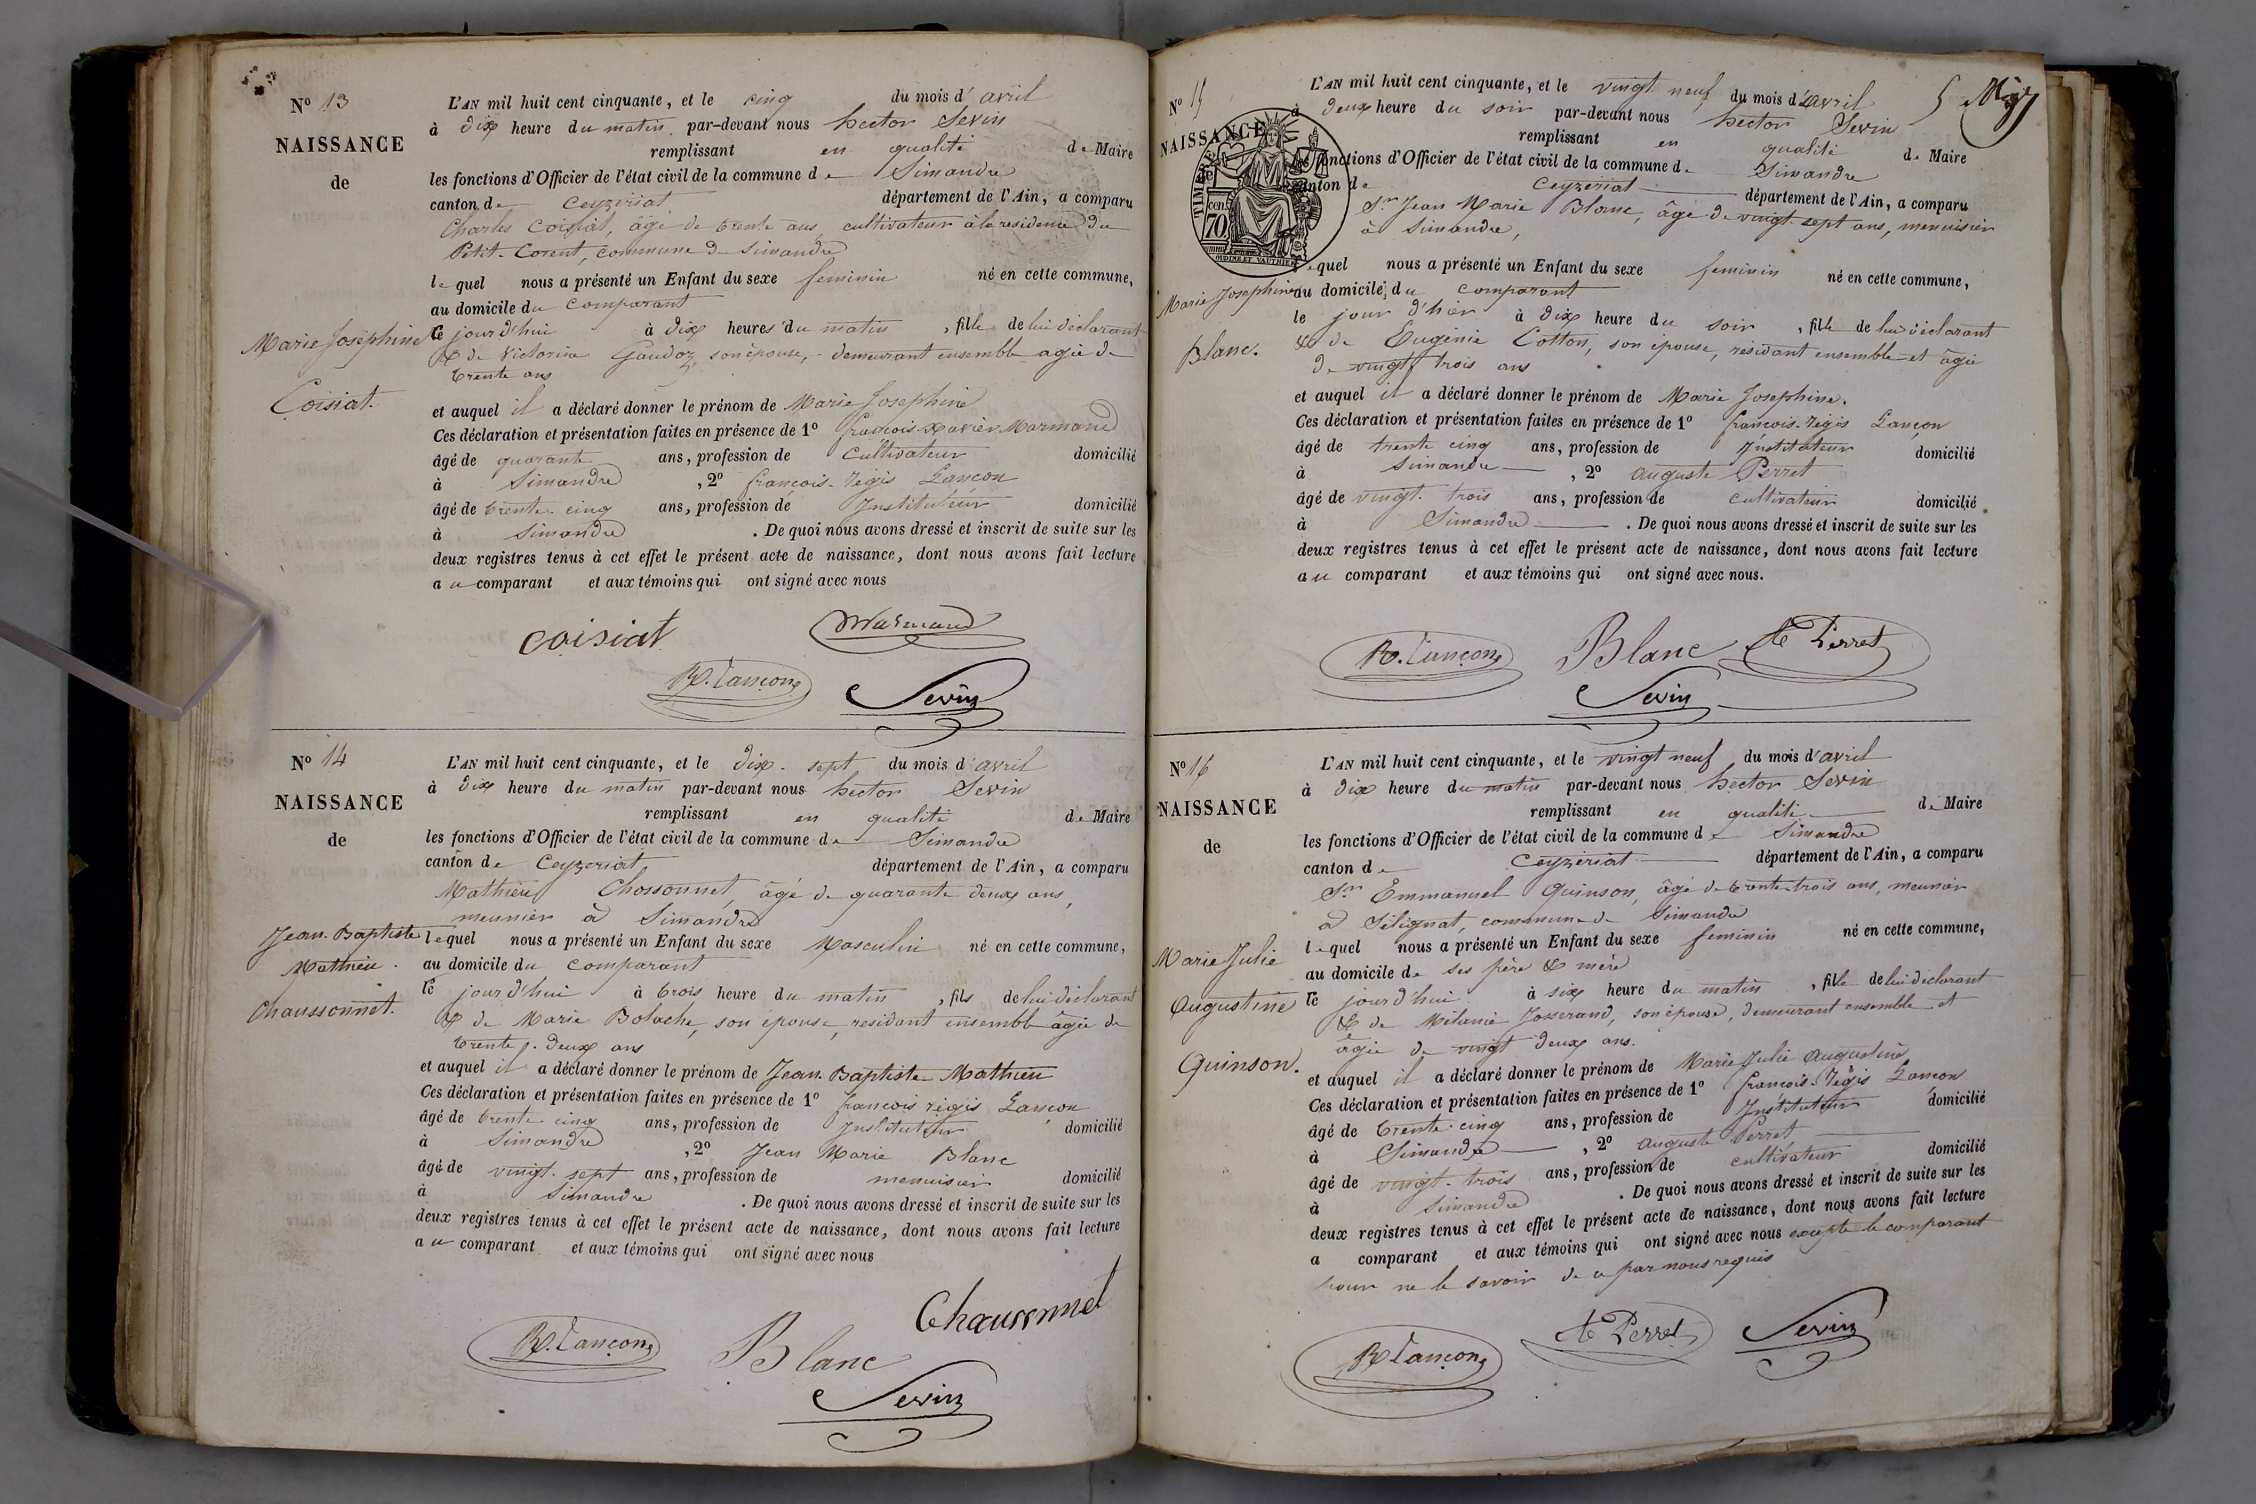 N° 13
NAISSANCE
de
Marie Joséphine
Coisiat.
L'AN mil huit cent cinquante, et le cinq du mois d'avril
à dix heure du matin par-devant nous hector Sevin
remplissant en qualité de Maire
les fonctions d'Officier de l'état civil de la commune de Simandre
canton de Ceyzeriat département de l'Ain, a comparu
Charles Coisiat, âgé de trente ans, cultivateur à la residence du
Petit-Corent, commune de Simandre
lequel nous a présenté un Enfant du sexe feminin né en cette commune,
au domicile du comparant
le jourd'hui à dix heures du matin, fille de lui déclarant
& de Victorine Gaudoz, son épouse, demeurant ensemble agée de
trente ans
et auquel il a déclaré donner le prénom de Marie Josephine
Ces déclaration et présentation faites en présence de 1° françois-Xavier Marmand
âgé de quarante ans, profession de Cultivateur domicilié
à Simandre, 2° françois-régis Lançon
âgé de trente-cinq ans, profession de Instituteur domicilié
à Simandre. De quoi nous avons dressé et inscrit de suite sur les
deux registres tenus à cet effet le présent acte de naissance, dont nous avons fait lecture
au comparant et aux témoins qui ont signé avec nous
coisiat Marmand
R. Lançon Sevin
N° 14
NAISSANCE
de
Jean-Baptiste
Mathieu.
Chaussonnet.
L'AN mil huit cent cinquante, et le dix-sept du mois d'avril
à dix heure du matin par-devant nous hector Sevin
remplissant en qualité de Maire
les fonctions d'Officier de l'état civil de la commune de Simandre
canton de Ceyzeriat département de l'Ain, a comparu
Mathieu Chossonnet, âgé de quarante deux ans,
meunier à Simandre
lequel nous a présenté un Enfant du sexe Masculin né en cette commune,
au domicile du comparant
le jourd'hui à trois heure du matin, fils de lui déclarant
& de Marie Bolache, son épouse, residant ensemble âgée de
trente-deux ans
et auquel il a déclaré donner le prénom de Jean-Baptiste Mathieu
Ces déclaration et présentation faites en présence de 1° françois régis Lançon
âgé de trente cinq ans, profession de Instituteur domicilié
à Simandre, 2° Jean Marie Blanc
âgé de vingt-sept ans, profession de menuisier domicilié
à Simandre. De quoi nous avons dressé et inscrit de suite sur les
deux registres tenus à cet effet le présent acte de naissance, dont nous avons fait lecture
au comparant et aux témoins qui ont signé avec nous
Chaussonnet
R. Lançon Blanc
Sevin
N° 15
NAISSANCE
de
TIMBRE
70 cen.
OUDINÉ ET VAUTHIER
Marie Josephine
Blanc.
L'AN mil huit cent cinquante, et le vingt neuf du mois d'avril
à deux heure du soir par-devant nous hector Sevin
remplissant en qualité de Maire
les fonctions d'Officier de l'état civil de la commune de Simandre
canton de Ceyzeriat département de l'Ain, a comparu
Sr Jean Marie Blanc, âgé de vingt-sept ans, menuisier
à Simandre,
lequel nous a présenté un Enfant du sexe feminin né en cette commune,
au domicile du comparant
le jour d'hier à dix heure du soir, fille de lui déclarant
& de Eugénie Cotton, son épouse, résidant ensemble et âgée
de vingt trois ans
et auquel il a déclaré donner le prénom de Marie Josephine.
Ces déclaration et présentation faites en présence de 1° françois-régis Lançon
âgé de trente cinq ans, profession de Instituteur domicilié
à Simandre, 2° auguste Perret
âgé de vingt-trois ans, profession de cultivateur domicilié
à Simandre. De quoi nous avons dressé et inscrit de suite sur les
deux registres tenus à cet effet le présent acte de naissance, dont nous avons fait lecture
au comparant et aux témoins qui ont signé avec nous.
R. Lançon Blanc Perret
Sevin
N° 16
NAISSANCE
de
Marie Julie
Augustine
Quinson.
L'AN mil huit cent cinquante, et le vingt neuf du mois d'avril
à dix heure du matin par-devant nous hector Sevin
remplissant en qualité de Maire
les fonctions d'Officier de l'état civil de la commune de Simandre
canton de Ceyzériat département de l'Ain, a comparu
Sr Emmanuel Quinson, âgé de trente-trois ans, meunier
à Sélignat, commune de Simandre
lequel nous a présenté un Enfant du sexe feminin né en cette commune,
au domicile de ses père & mère
le jourd'hui à six heure du matin, fille de lui déclarant
& de Mélanie Josserand, son épouse, demeurant ensemble et
âgée de vingt deux ans.
et auquel il a déclaré donner le prénom de Marie Julie Augustine
Ces déclaration et présentation faites en présence de 1° françois-régis Lançon
âgé de trente-cinq ans, profession de Instituteur domicilié
à Simandre, 2° auguste Perret
âgé de vingt-trois ans, profession de cultivateur domicilié
à Simandre. De quoi nous avons dressé et inscrit de suite sur les
deux registres tenus à cet effet le présent acte de naissance, dont nous avons fait lecture
a comparant et aux témoins qui ont signé avec nous excepté le comparant
pour ne le savoir de ce par nous requis
R Lançon Perret Sevin